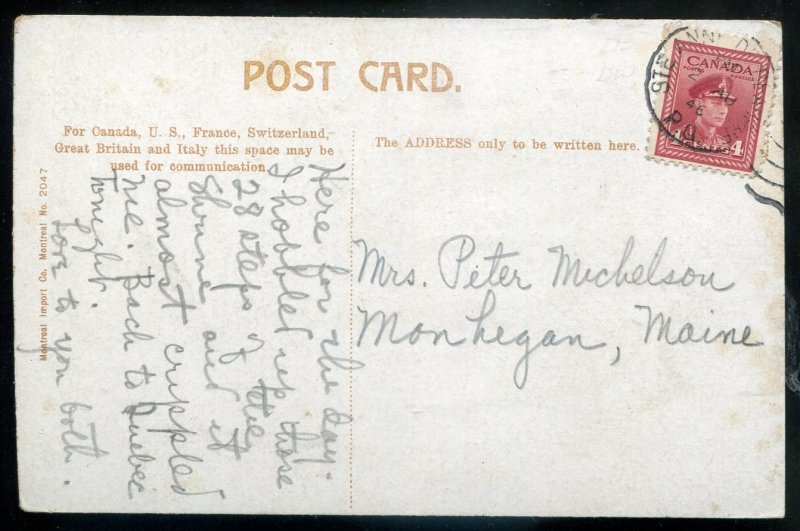 POST CARD.
For Canada, U. S., France, Switzerland,
Great Britain and Italy this space may be
used for communication.
The ADDRESS only to be written here.
Montreal Import Co. Montreal No. 2047
Here for the day.
I hobbled up those
28 steps of the
Shrine and it
almost crippled
me. Back to Quebec
tonight.
Love to you both.
Mrs. Peter Michelson
Monhegan, Maine
CANADA
POSTES POSTAGE
4 CENTS 4
STE ANNE D
46
P.Q.